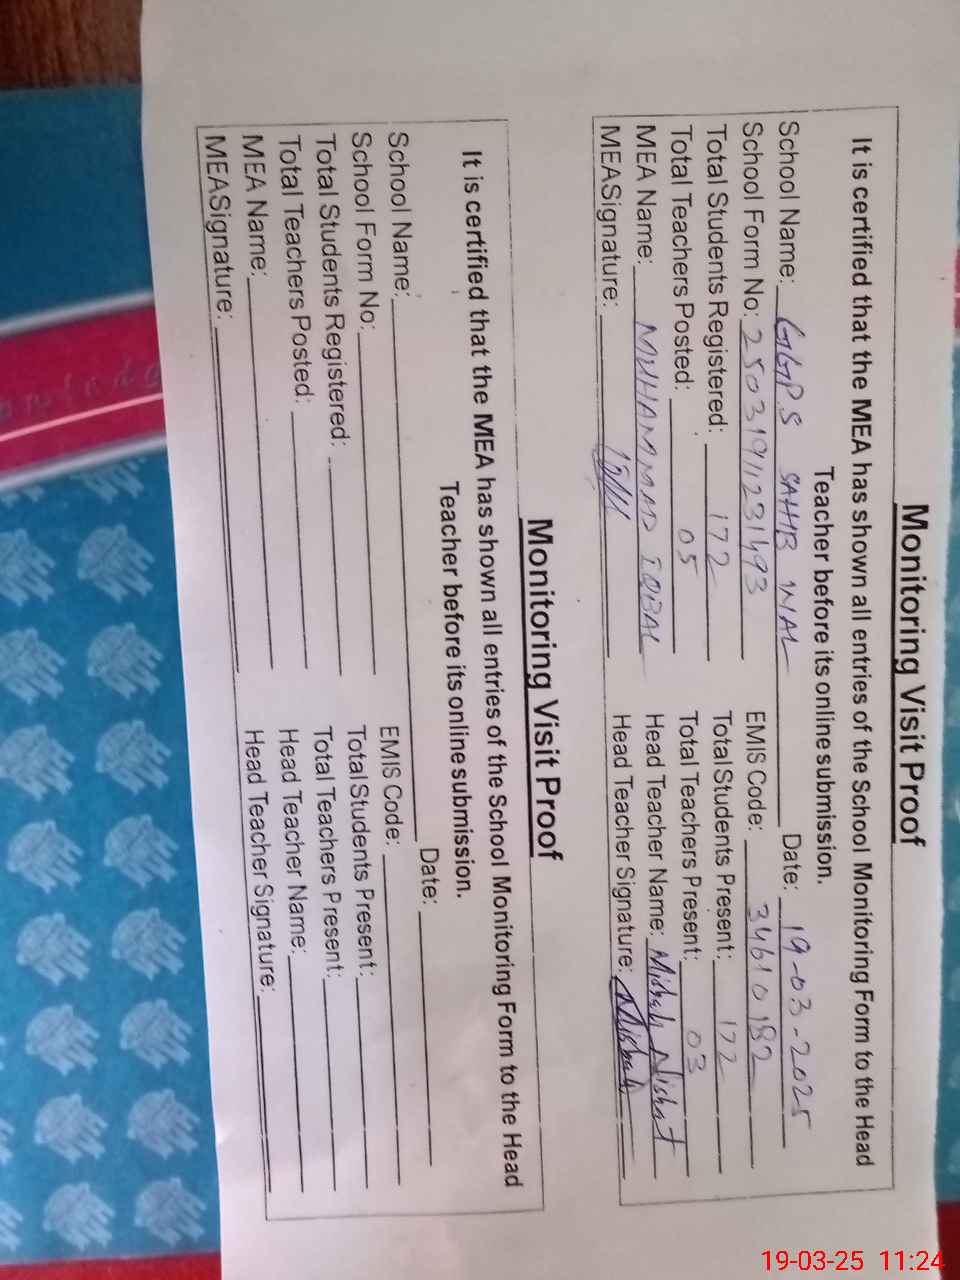 Monitoring Visit Proof
It is certified that the MEA has shown all entries of the School Monitoring Form to the Head
Teacher before its online submission.
School Name: GGPS SAHIB WAL Date: 19-03-2025
School Form No: 25031911231493 EMIS Code: 34610182
Total Students Registered: 172 Total Students Present: 172
Total Teachers Posted: 05 Total Teachers Present: 03
MEA Name: MUHAMMAD IQBAL Head Teacher Name: Misbah Nishat
MEASignature: Head Teacher Signature: Misbah
Monitoring Visit Proof
It is certified that the MEA has shown all entries of the School Monitoring Form to the Head
Teacher before its online submission.
School Name: Date:
School Form No: EMIS Code:
Total Students Registered: Total Students Present:
Total Teachers Posted: Total Teachers Present:
MEA Name: Head Teacher Name:
MEASignature: Head Teacher Signature:
19-03-25 11:24